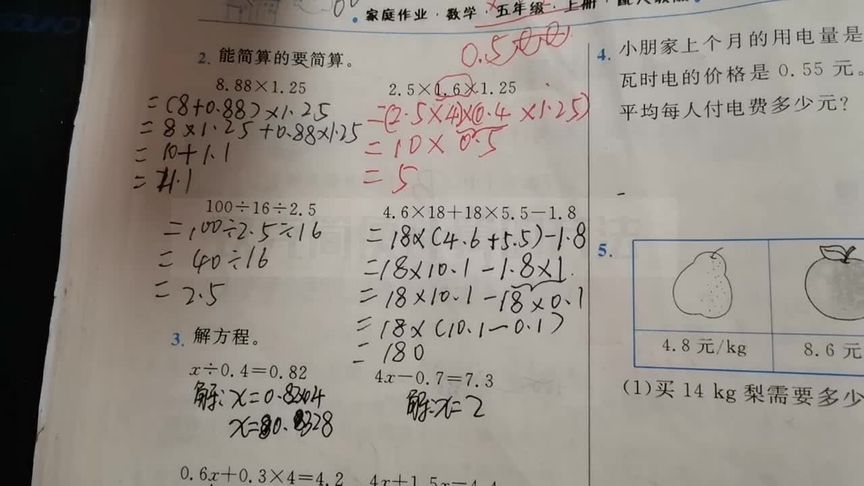 家庭作业·数学 五年级·上册·配人教版
2. 能简算的要简算。
8.88×1.25
=(8+0.88)×1.25
=8×1.25+0.88×1.25
=10+1.1
=11.1
2.5×1.6×1.25
=(2.5×4)×(0.4×1.25)
=10×0.5
=5
100÷16÷2.5
=100÷2.5÷16
=40÷16
=2.5
4.6×18+18×5.5-1.8
=18×(4.6+5.5)-1.8
=18×10.1-1.8×1
=18×10.1-18×0.1
=18×(10.1-0.1)
=180
3. 解方程。
x÷0.4=0.82
解:x=0.82×0.4
x=0.328
4x-0.7=7.3
解:x=2
0.6x+0.3×4=4.2
4.小朋家上个月的用电量是
瓦时电的价格是 0.55 元。
平均每人付电费多少元?
5.
4.8 元/kg
8.6 元
(1)买 14 kg 梨需要多少